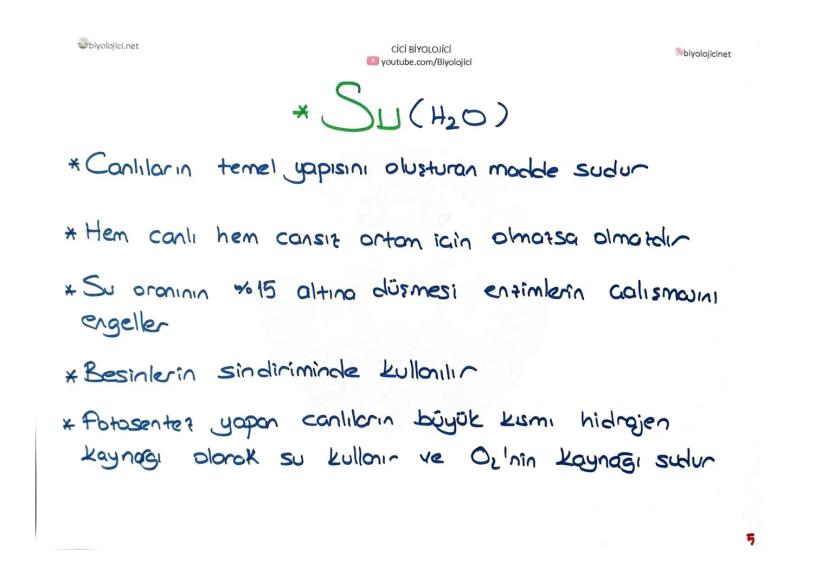 biyolojici.net
CİCİ BİYOLOJİCİ
youtube.com/Biyolojici
biyolojicinet
* Su (H₂O)
* Canlıların temel yapısını oluşturan madde sudur
* Hem canlı hem cansız ortam için olmazsa olmazdır
* Su oranının %15 altına düşmesi enzimlerin çalışmasını
engeller
* Besinlerin sindiriminde kullanılır
* Fotosentez yapan canlıların büyük kısmı hidrojen
kaynağı olarak su kullanır ve O₂'nin kaynağı sudur
5